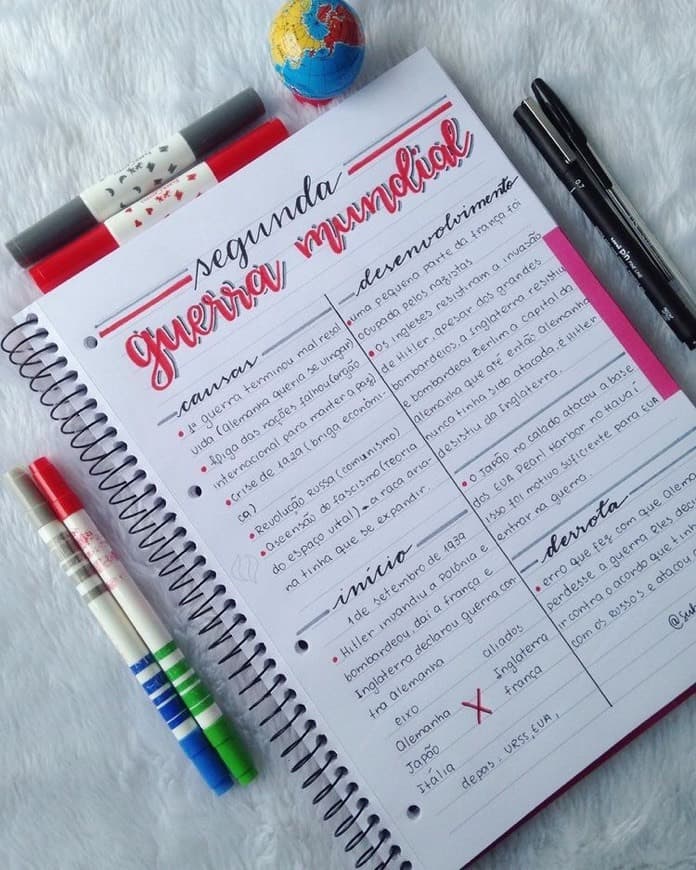 segunda
guerra mundial
causas
• 1ª guerra terminou mal resol
vida (alemanha queria se vingar)
• liga das nações falhou (órgão
internacional para manter a paz)
• Crise de 1929 (briga econômi-
ca)
• Revolução Russa (comunismo)
• Ascensão do fascismo (teoria
do espaço vital) → a raça aria-
na tinha que se expandir.
início
1 de setembro de 1939
• Hitler invandiu a Polônia e
bombardeou, daí a frança e
Inglaterra declarou guerra con
tra alemanha
eixo aliados
Alemanha X Inglaterra
Japão frança
Itália
depois: URSS, EUA,
desenvolvimento
• uma pequena parte da frança foi
ocupada pelos nazistas
• Os ingleses resistiram a invasão
de Hitler, apesar dos grandes
bombardeios, a Inglaterra resistiu
e bombardeou Berlim a capital da
alemanha que até então alemanha
nunca tinha sido atacada, e Hitler
desistiu da Inglaterra.
• O Japão no calado atacou a base
dos EUA Pearl Harbor no Havaí
isso foi motivo suficiente para EUA
entrar na guerra.
derrota
• erro que fez com que
perdesse a guerra. Eles
ir contra o acordo que
com os Russos e atacou
0.7